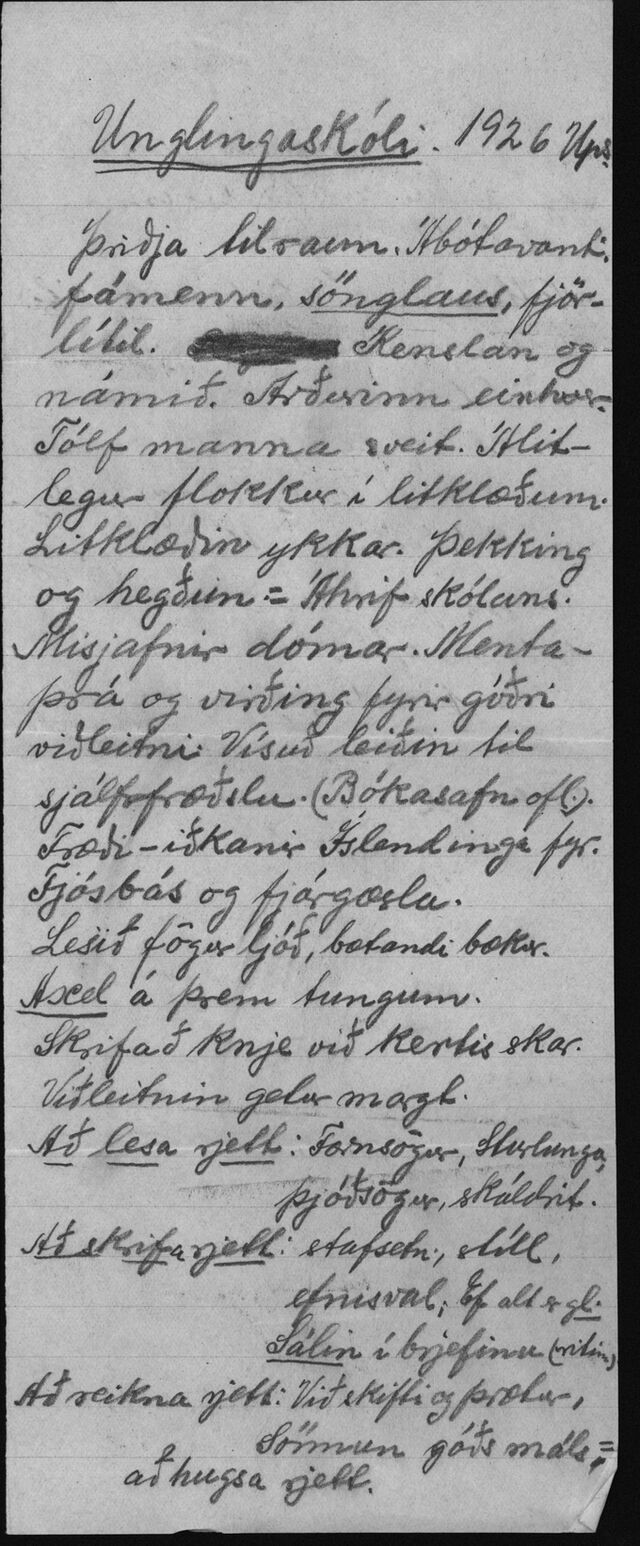 Unglingaskóli. 1926 Ups.
Þriðja tilraun. Ábótavant:
fámenn, sönglaus, fjör-
lítil. Kenslan og
námið. Arðurinn einhver.
Tólf manna sveit. Álit-
legur flokkur í litklæðum.
Litklæðin ykkar. Þekking
og hegðun = Áhrif skólans.
Misjafnir dómar. Menta-
þrá og virðing fyrir góðri
viðleitni. Vísuð leiðin til
sjálfsfræðslu. (Bókasafn ofl.).
Fræði-iðkanir Íslendinga fyr.
Fjósbás og fjárgæsla.
Lesið fögur ljóð, bætandi bækur.
Axel á þrem tungum.
Skrifað á knje við kertisskar.
Viðleitnin getur margt.
Að lesa rjett: Fornsögur, Sturlunga,
þjóðsögur, skáldrit.
Að skrifa rjett: stafsetn., stíll,
efnisval; Ef alt er gl.
Sálin í brjefinu (ritinu)
Að reikna rjett: Viðskifti og þrætur,
Sönnun góðs máls, =
að hugsa rjett.